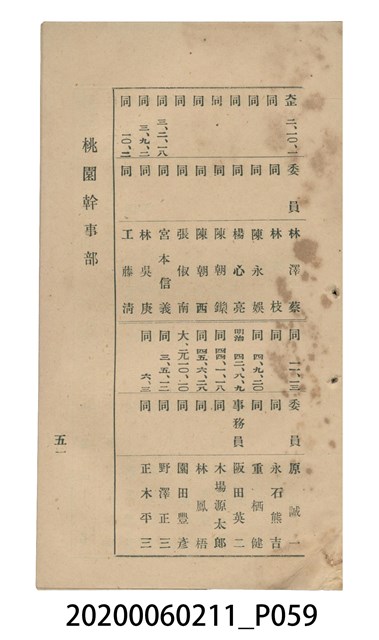 大正 二、一〇、一 委員 林澤蔡
同 同 林枝
同 同 陳永娛
同 同 楊心亮
同 同 陳朝鏘
同 同 陳朝西
同 同 張俶南
同 三、二、一八 同 宮本信義
同 三、九、二 同 林吳庚
同 一〇、二 同 工藤清
同 一一、一三 委員 原誠一
同 同 永石熊吉
同 四、九、二〇 同 重栖健
明治 四二、八、九 事務員 阪田英二
同 四四、一、一八 同 木場源太郎
同 四五、六、二八 同 林鳳梧
大、元、一〇、一〇 同 園田豐彥
同 三、五、一二 同 野澤正三
同 六、三 同 正木平三
桃園幹事部
五一
20200060211_P059